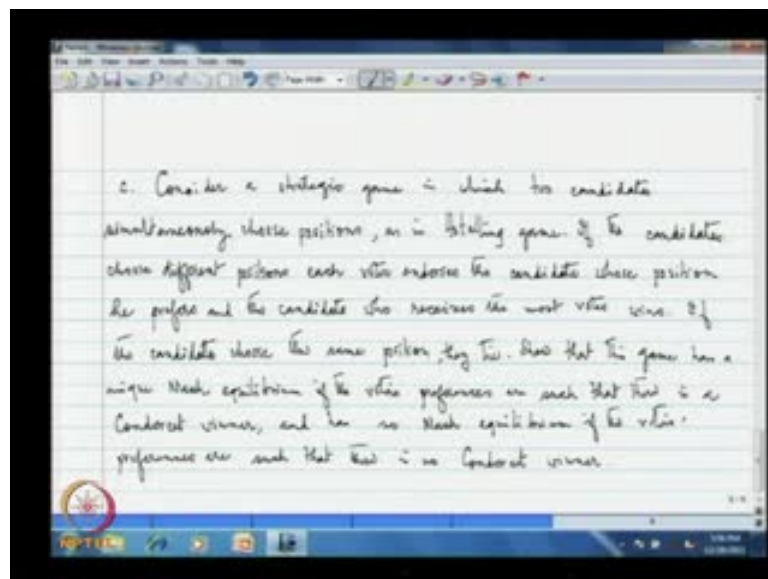 c. Consider a strategic game in which two candidates
simultaneously choose positions, as in Hotelling game. If the candidates
choose different positions each voter endorses the candidate whose position
he prefers and the candidate who receives the most votes wins. If
the candidates choose the same position, they tie. Show that this game has a
unique Nash equilibrium if the voters preferences are such that there is a
Condorcet winner, and has no Nash equilibrium if the voters'
preferences are such that there is no Condorcet winner.
NPTEL